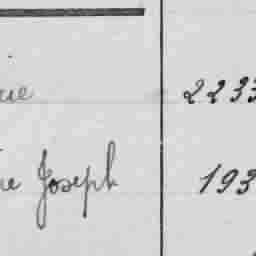 2233
Joseph 193